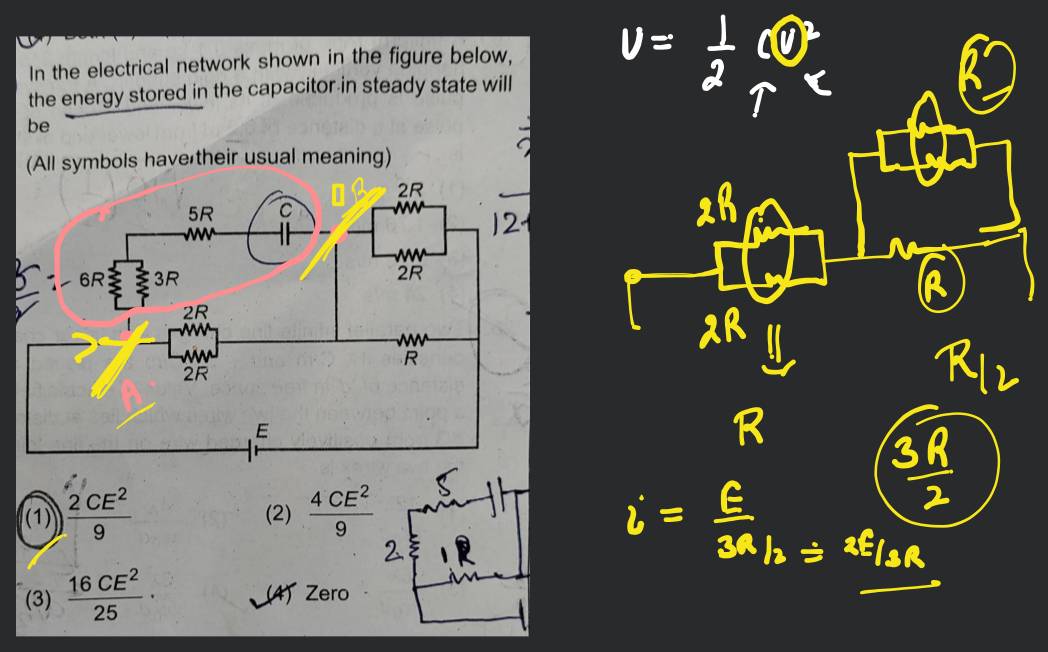 In the electrical network shown in the figure below,
the energy stored in the capacitor in steady state will
be
(All symbols have their usual meaning)
B
2R
5R
C
2R
6R
3R
2R
2R
R
A
E
(1) 2 CE² / 9
(2) 4 CE² / 9
(3) 16 CE² / 25
(4) Zero
5
2
1R
12+
U = 1/2 CV²
R
2R
2R
R
R
R/2
3R/2
i = E / 3R/2 = 2E/3R